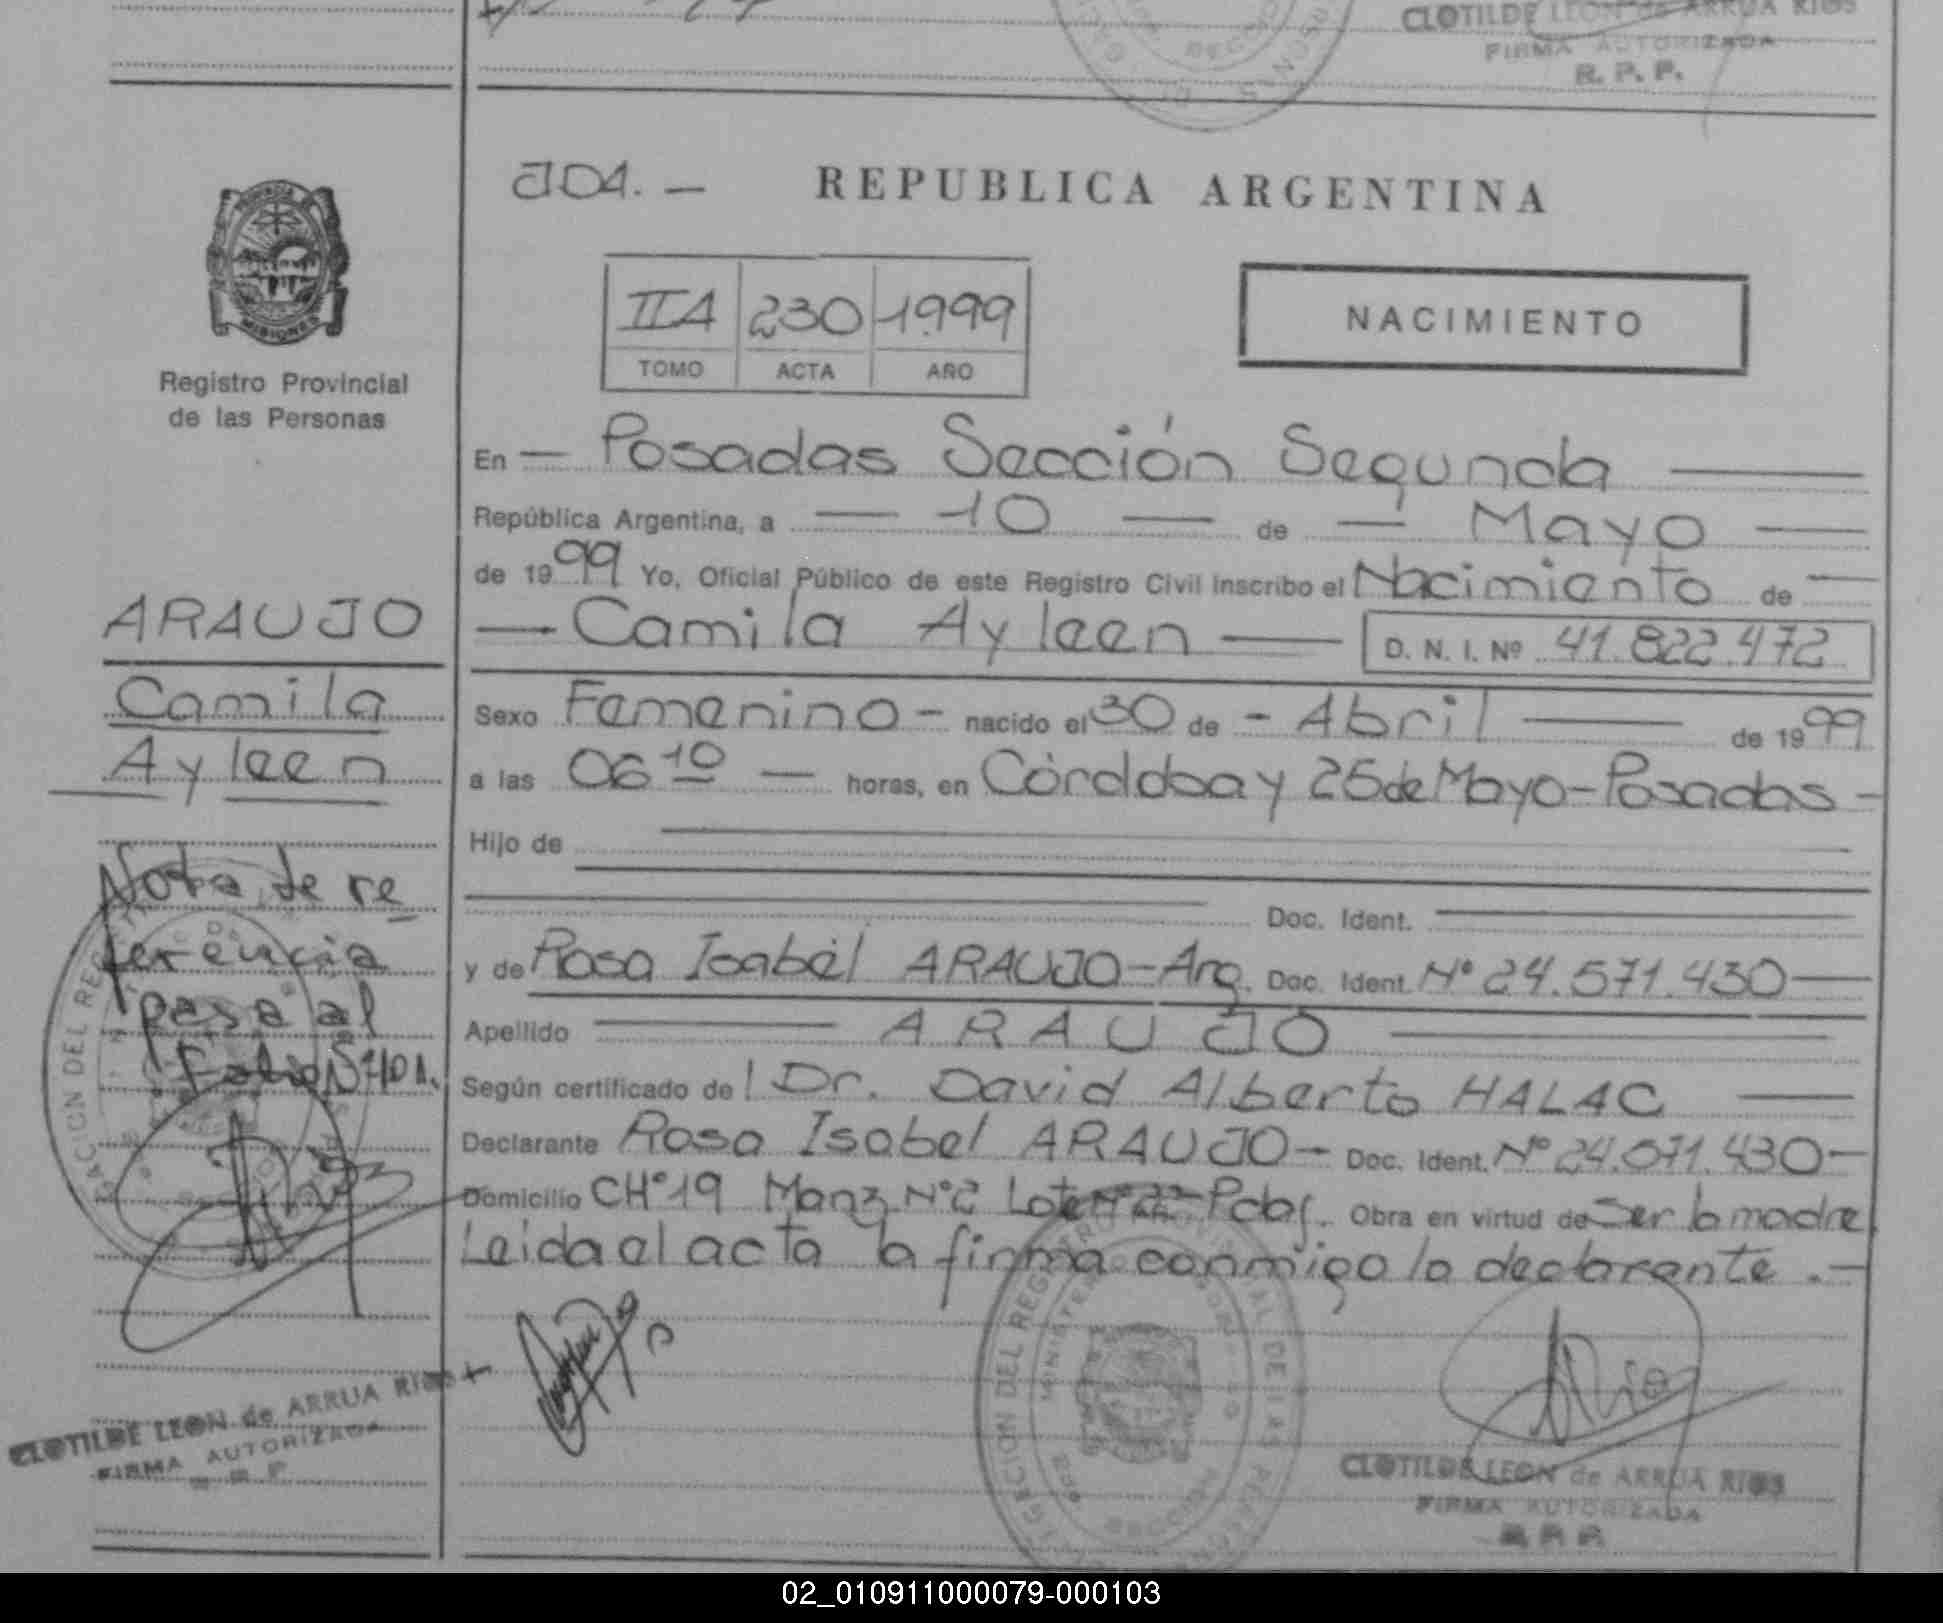 CLOTILDE LEON de ARRUA RIOS
FIRMA AUTORIZADA
R. P. P.
J01. —
REPUBLICA ARGENTINA
IIA 230 1999
TOMO ACTA AÑO
NACIMIENTO
MISIONES
Registro Provincial
de las Personas
ARAUJO
Camila
Ayleen
Nota de re
ferencia
pasa al
Folio
CLOTILDE LEON de ARRUA RIOS
FIRMA AUTORIZADA
En — Posadas Sección Segunda —
República Argentina, a — 10 — de — Mayo —
de 1999 Yo, Oficial Público de este Registro Civil inscribo el Nacimiento de —
— Camila Ayleen — D. N. I. Nº 41.822.472
Sexo Femenino - nacido el 30 de - Abril — de 1999
a las 06 10 — horas, en Córdoba y 25 de Mayo - Posadas -
Hijo de
Doc. Ident.
y de Rosa Isabel ARAUJO - Arg. Doc. Ident. Nº 24.571.430 —
Apellido — ARAUJO —
Según certificado del Dr. David Alberto HALAC —
Declarante Rosa Isabel ARAUJO - Doc. Ident. Nº 24.571.430 -
Domicilio CHº19 Manz Nº2 Lote Pdas. Obra en virtud de ser la madre
Leida el acta la firma conmigo la declarante. -
CLOTILDE LEON de ARRUA RIOS
FIRMA AUTORIZADA
R P P
02_010911000079-000103